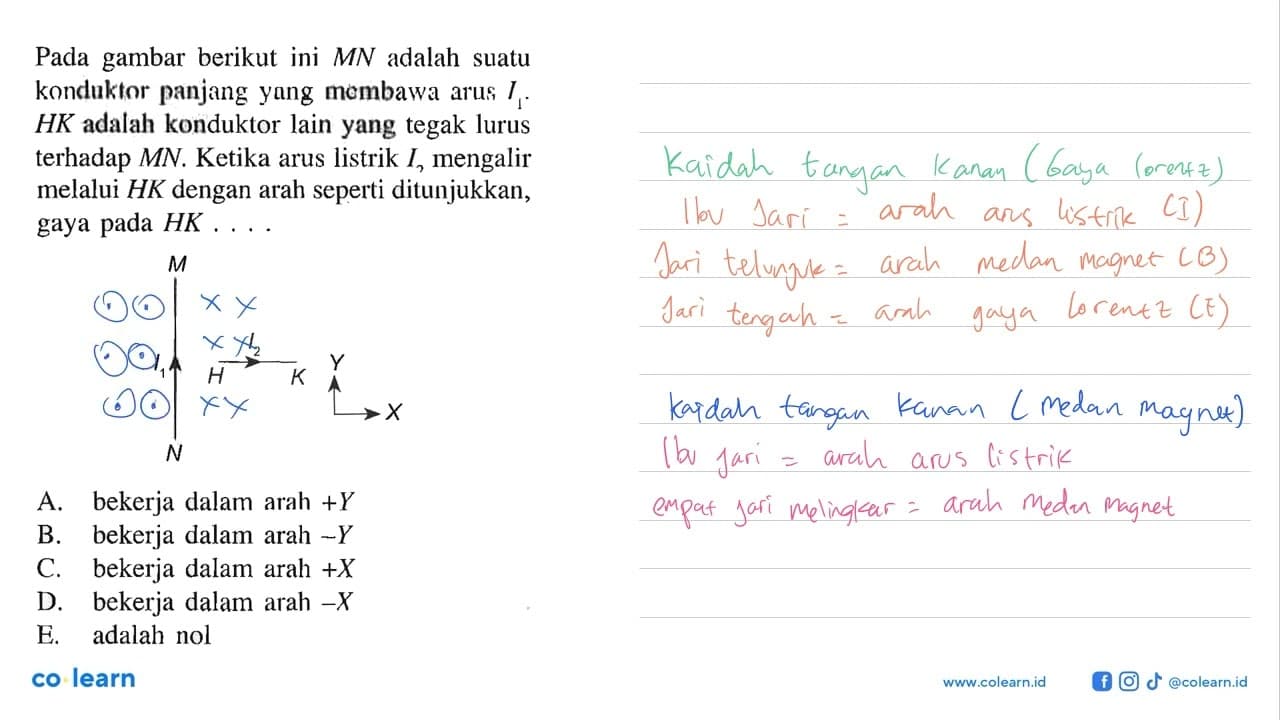 Pada gambar berikut ini MN adalah suatu
konduktor panjang yang membawa arus I₁.
HK adalah konduktor lain yang tegak lurus
terhadap MN. Ketika arus listrik I, mengalir
melalui HK dengan arah seperti ditunjukkan,
gaya pada HK . . . .
M
x x
x x I₂
I₁
H
K
Y
X
x x
N
A. bekerja dalam arah +Y
B. bekerja dalam arah –Y
C. bekerja dalam arah +X
D. bekerja dalam arah –X
E. adalah nol
Kaidah tangan kanan (Gaya lorentz)
Ibu Jari = arah arus listrik (I)
Jari telunjuk = arah medan magnet (B)
Jari tengah = arah gaya lorentz (F)
kaidah tangan kanan (medan magnet)
Ibu jari = arah arus listrik
empat jari melingkar = arah medan magnet
co learn
www.colearn.id
@colearn.id